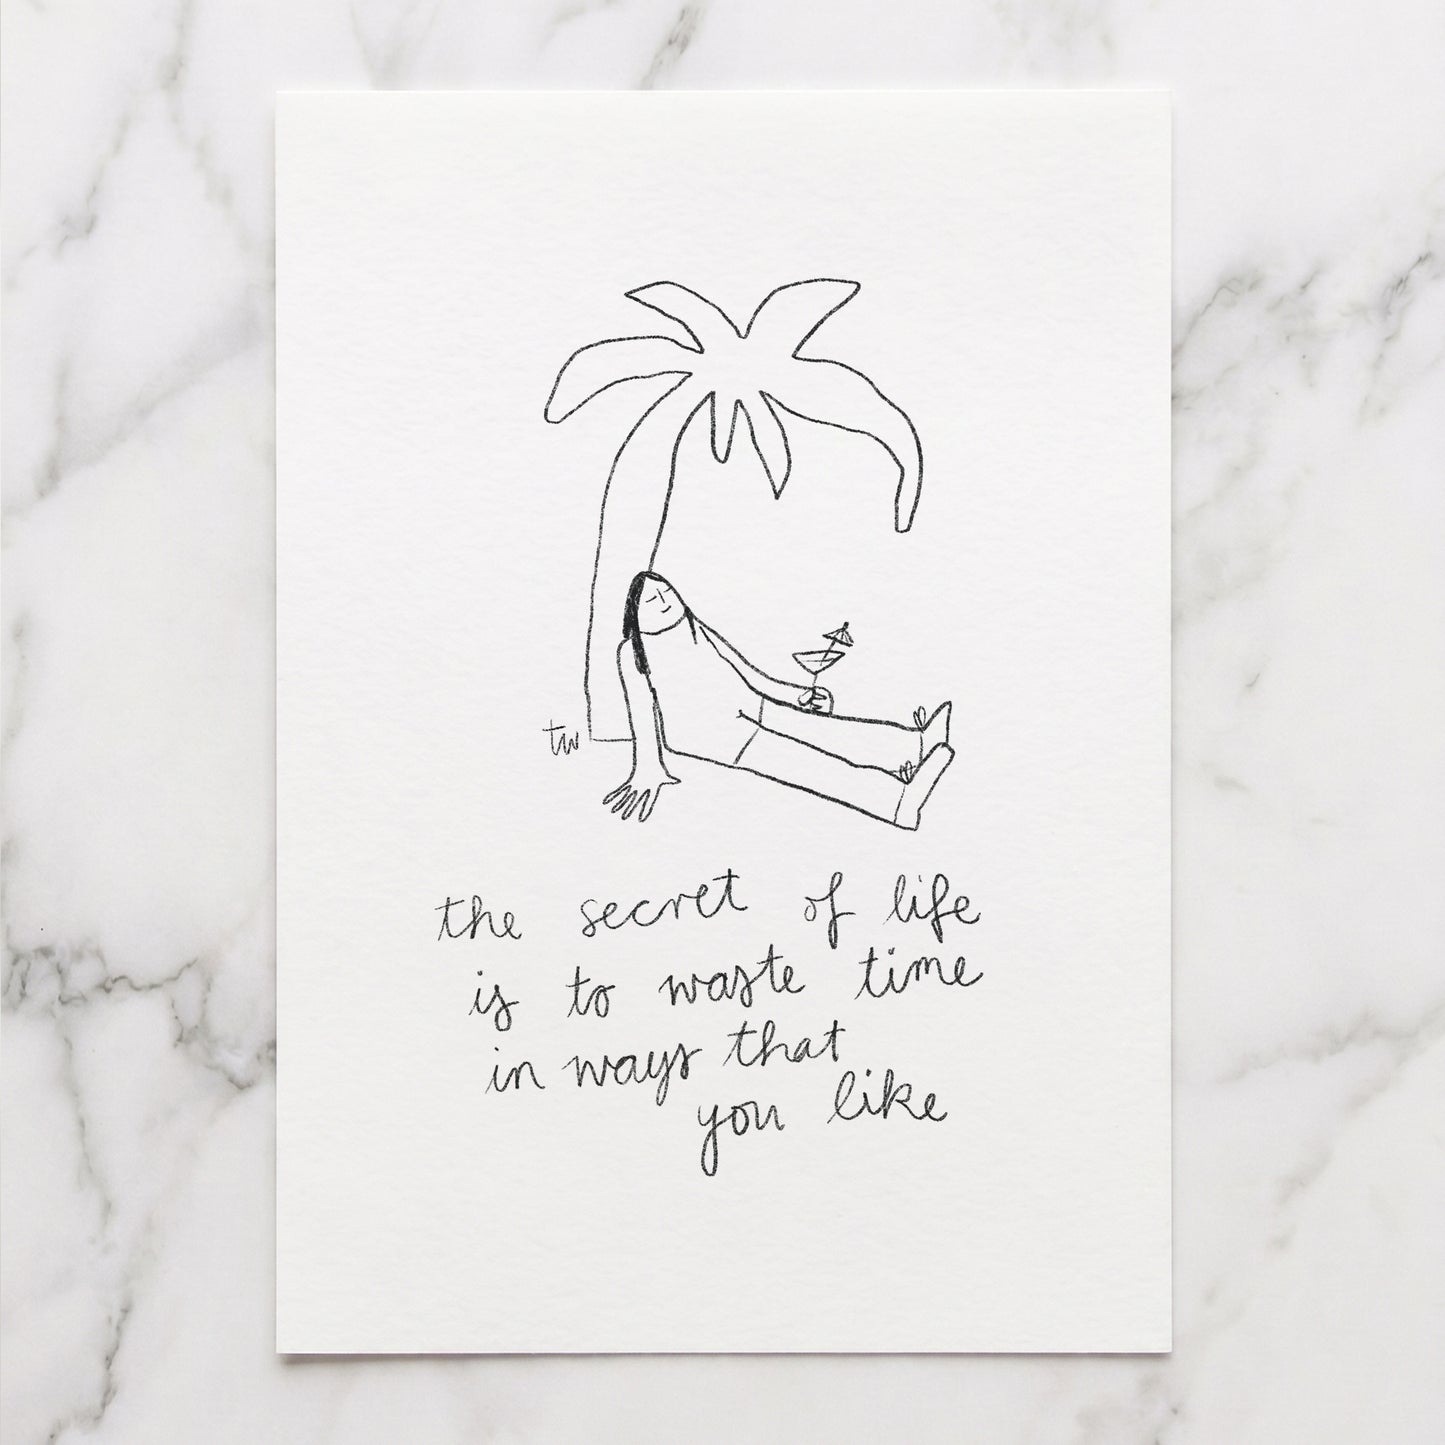 tw
the secret of life
is to waste time
in ways that
you like